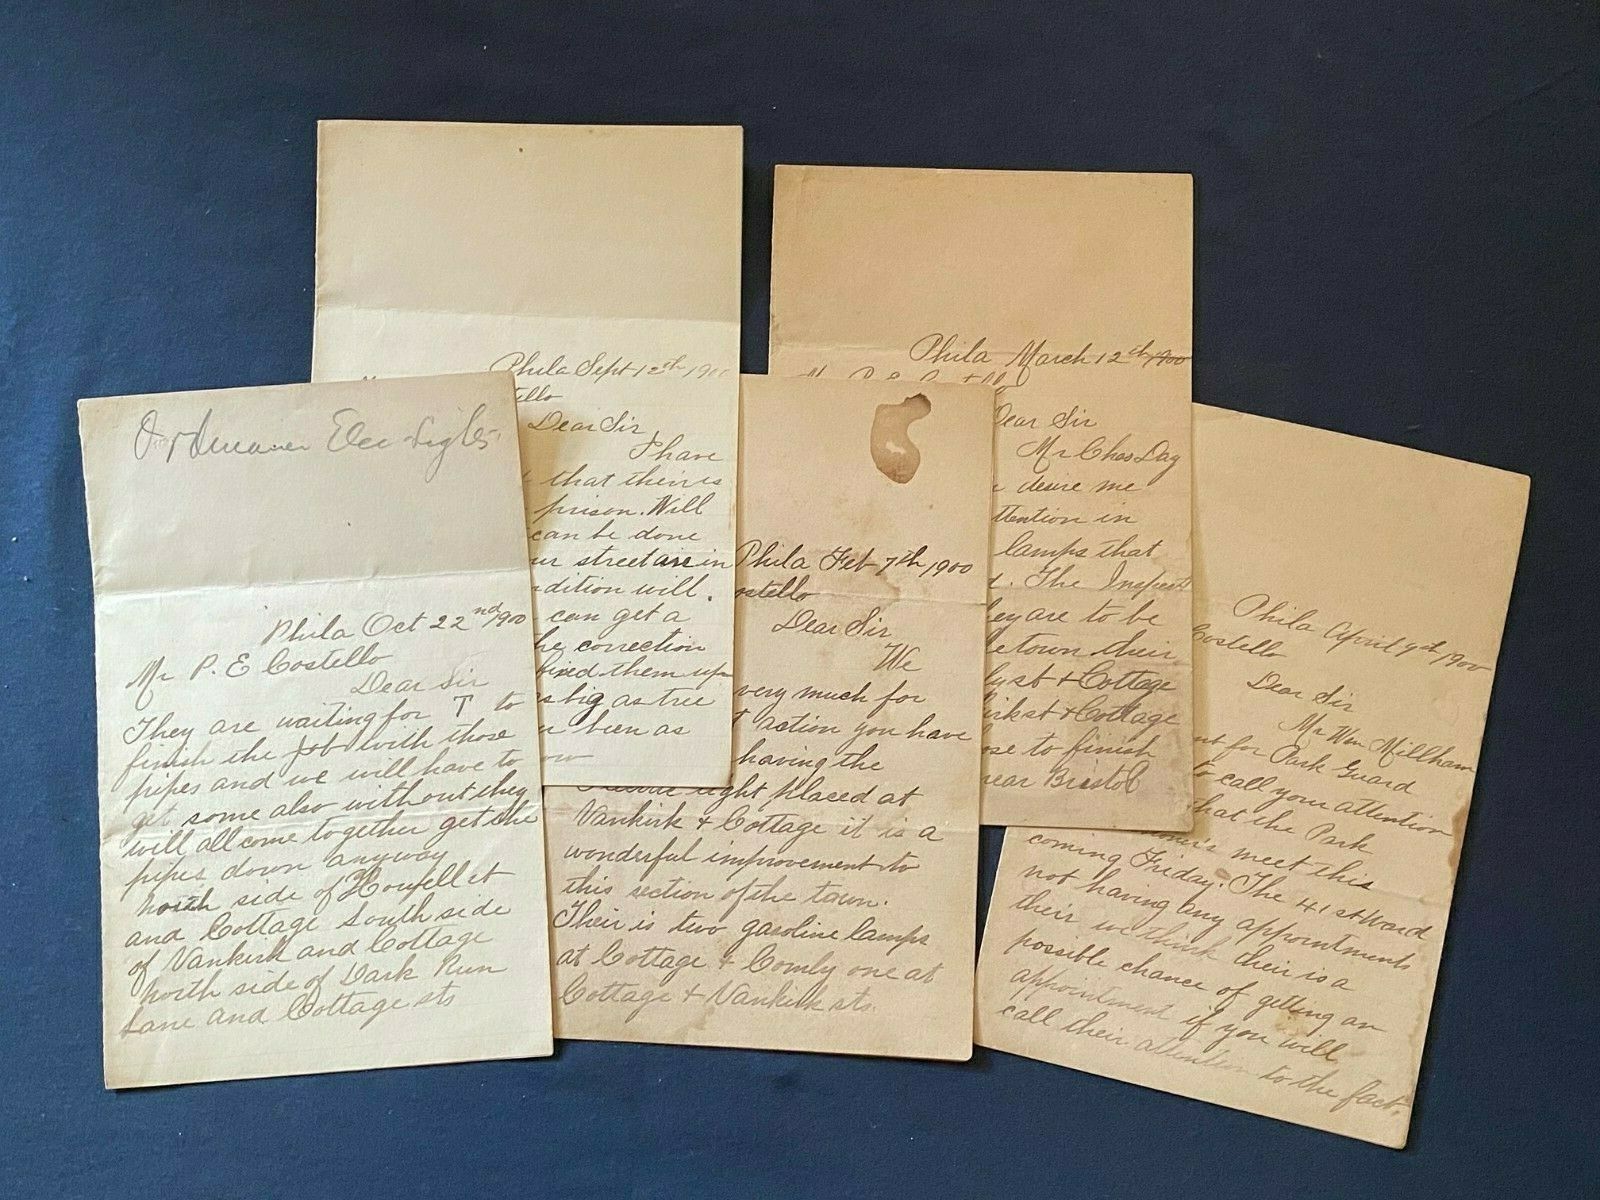 Elec Lights
Phila Oct 22nd 1900
Mr P. E Costello
Dear Sir
They are waiting for T to
finish the job with those
pipes and we will have to
get some also without they
will all come together get the
pipes down anyway
north side of Howell st
and Cottage South side
of Vankirk and Cottage
north side of Dark Run
Lane and Cottage sts
Phila Sept 12th 1900
tello
Dear Sir
I have
that their is
prison. Will
can be done
ur street are in
ndition will
can get a
he correction
fixed them up
s big as tree
been as
ow
Phila Feb 7th 1900
ostello
Dear Sir
We
very much for
t action you have
having the
light placed at
Vankirk & Cottage it is a
wonderful improvement to
this section of the town.
Their is two gasoline lamps
at Cottage & Comly one at
Cottage & Vankirk sts.
Phila March 12th 1900
Dear Sir
Mr Chas Day
desire me
ttention in
lamps that
The Inspect
hey are to be
etown their
ly st & Cottage
irk st & Cottage
ose to finish
near Bristol
Phila April 9th 1900
Costello
Dear Sir
Mr Wm Millham
nt for Park Guard
to call your attention
that the Park
meet this
coming Friday. The 41st Ward
not having any appointments
their we think their is a
possible chance of getting an
appointment if you will
call their attention to the fact.